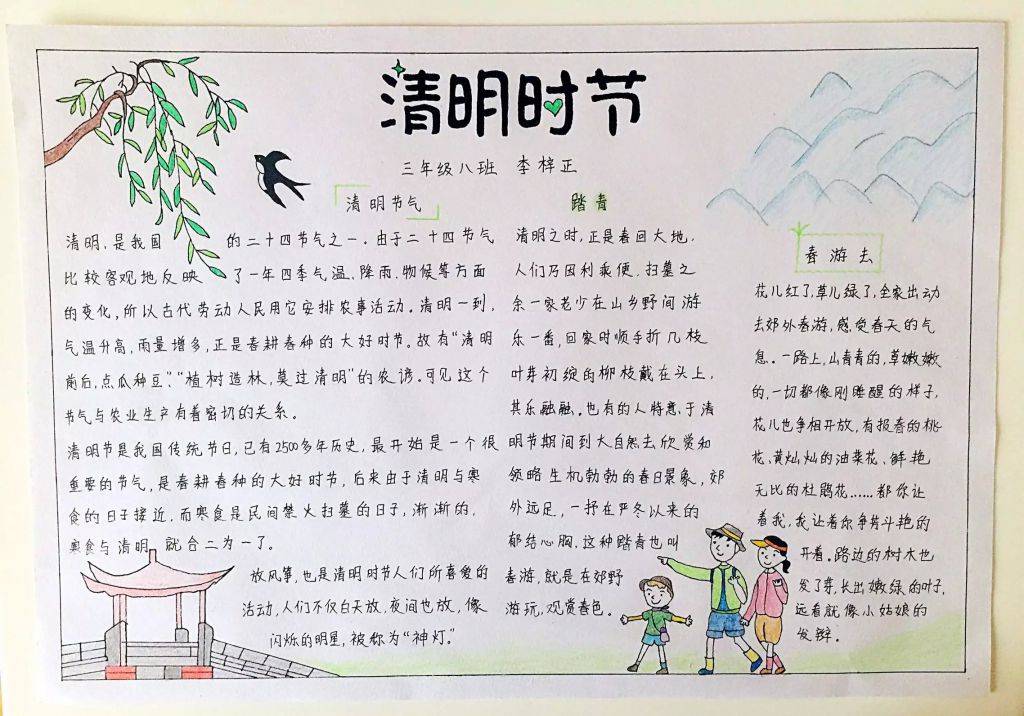 清明时节
三年级八班 李梓正
清明节气
清明,是我国的二十四节气之一.由于二十四节气
比较客观地反映了一年四季气温、降雨、物候等方面
的变化,所以古代劳动人民用它安排农事活动。清明一到,
气温升高,雨量增多,正是春耕春种的大好时节。故有“清明
前后,点瓜种豆”.“植树造林,莫过清明”的农谚。可见这个
节气与农业生产有着密切的关系。
清明节是我国传统节日,已有2500多年历史,最开始是一个很
重要的节气,是春耕春种的大好时节,后来由于清明与寒
食的日子接近,而寒食是民间禁火扫墓的日子,渐渐的,
寒食与清明就合二为一了。
放风筝,也是清明时节人们所喜爱的
活动,人们不仅白天放,夜间也放,像
闪烁的明星,被称为“神灯.”
踏青
清明之时,正是春回大地,
人们乃因利乘便,扫墓之
余一家老少在山乡野间游
乐一番,回家时顺手折几枝
叶芽初绽的柳枝戴在头上,
其乐融融。也有的人特意于清
明节期间到大自然去欣赏和
领略生机勃勃的春日景象,郊
外远足,一抒在严冬以来的
郁结心胸.这种踏青也叫
春游,就是在郊野
游玩,观赏春色。
春游去
花儿红了,草儿绿了,全家出动
去郊外春游,感受春天的气
息。一路上,山青青的,草嫩嫩
的,一切都像刚睡醒的样子,
花儿也争相开放,有报春的桃
花、黄灿灿的油菜花、鲜艳
无比的杜鹃花……都你让
着我,我让着你争芳斗艳的
开着。路边的树木也
发了芽,长出嫩绿的叶子,
远看就像小姑娘的
发辫。